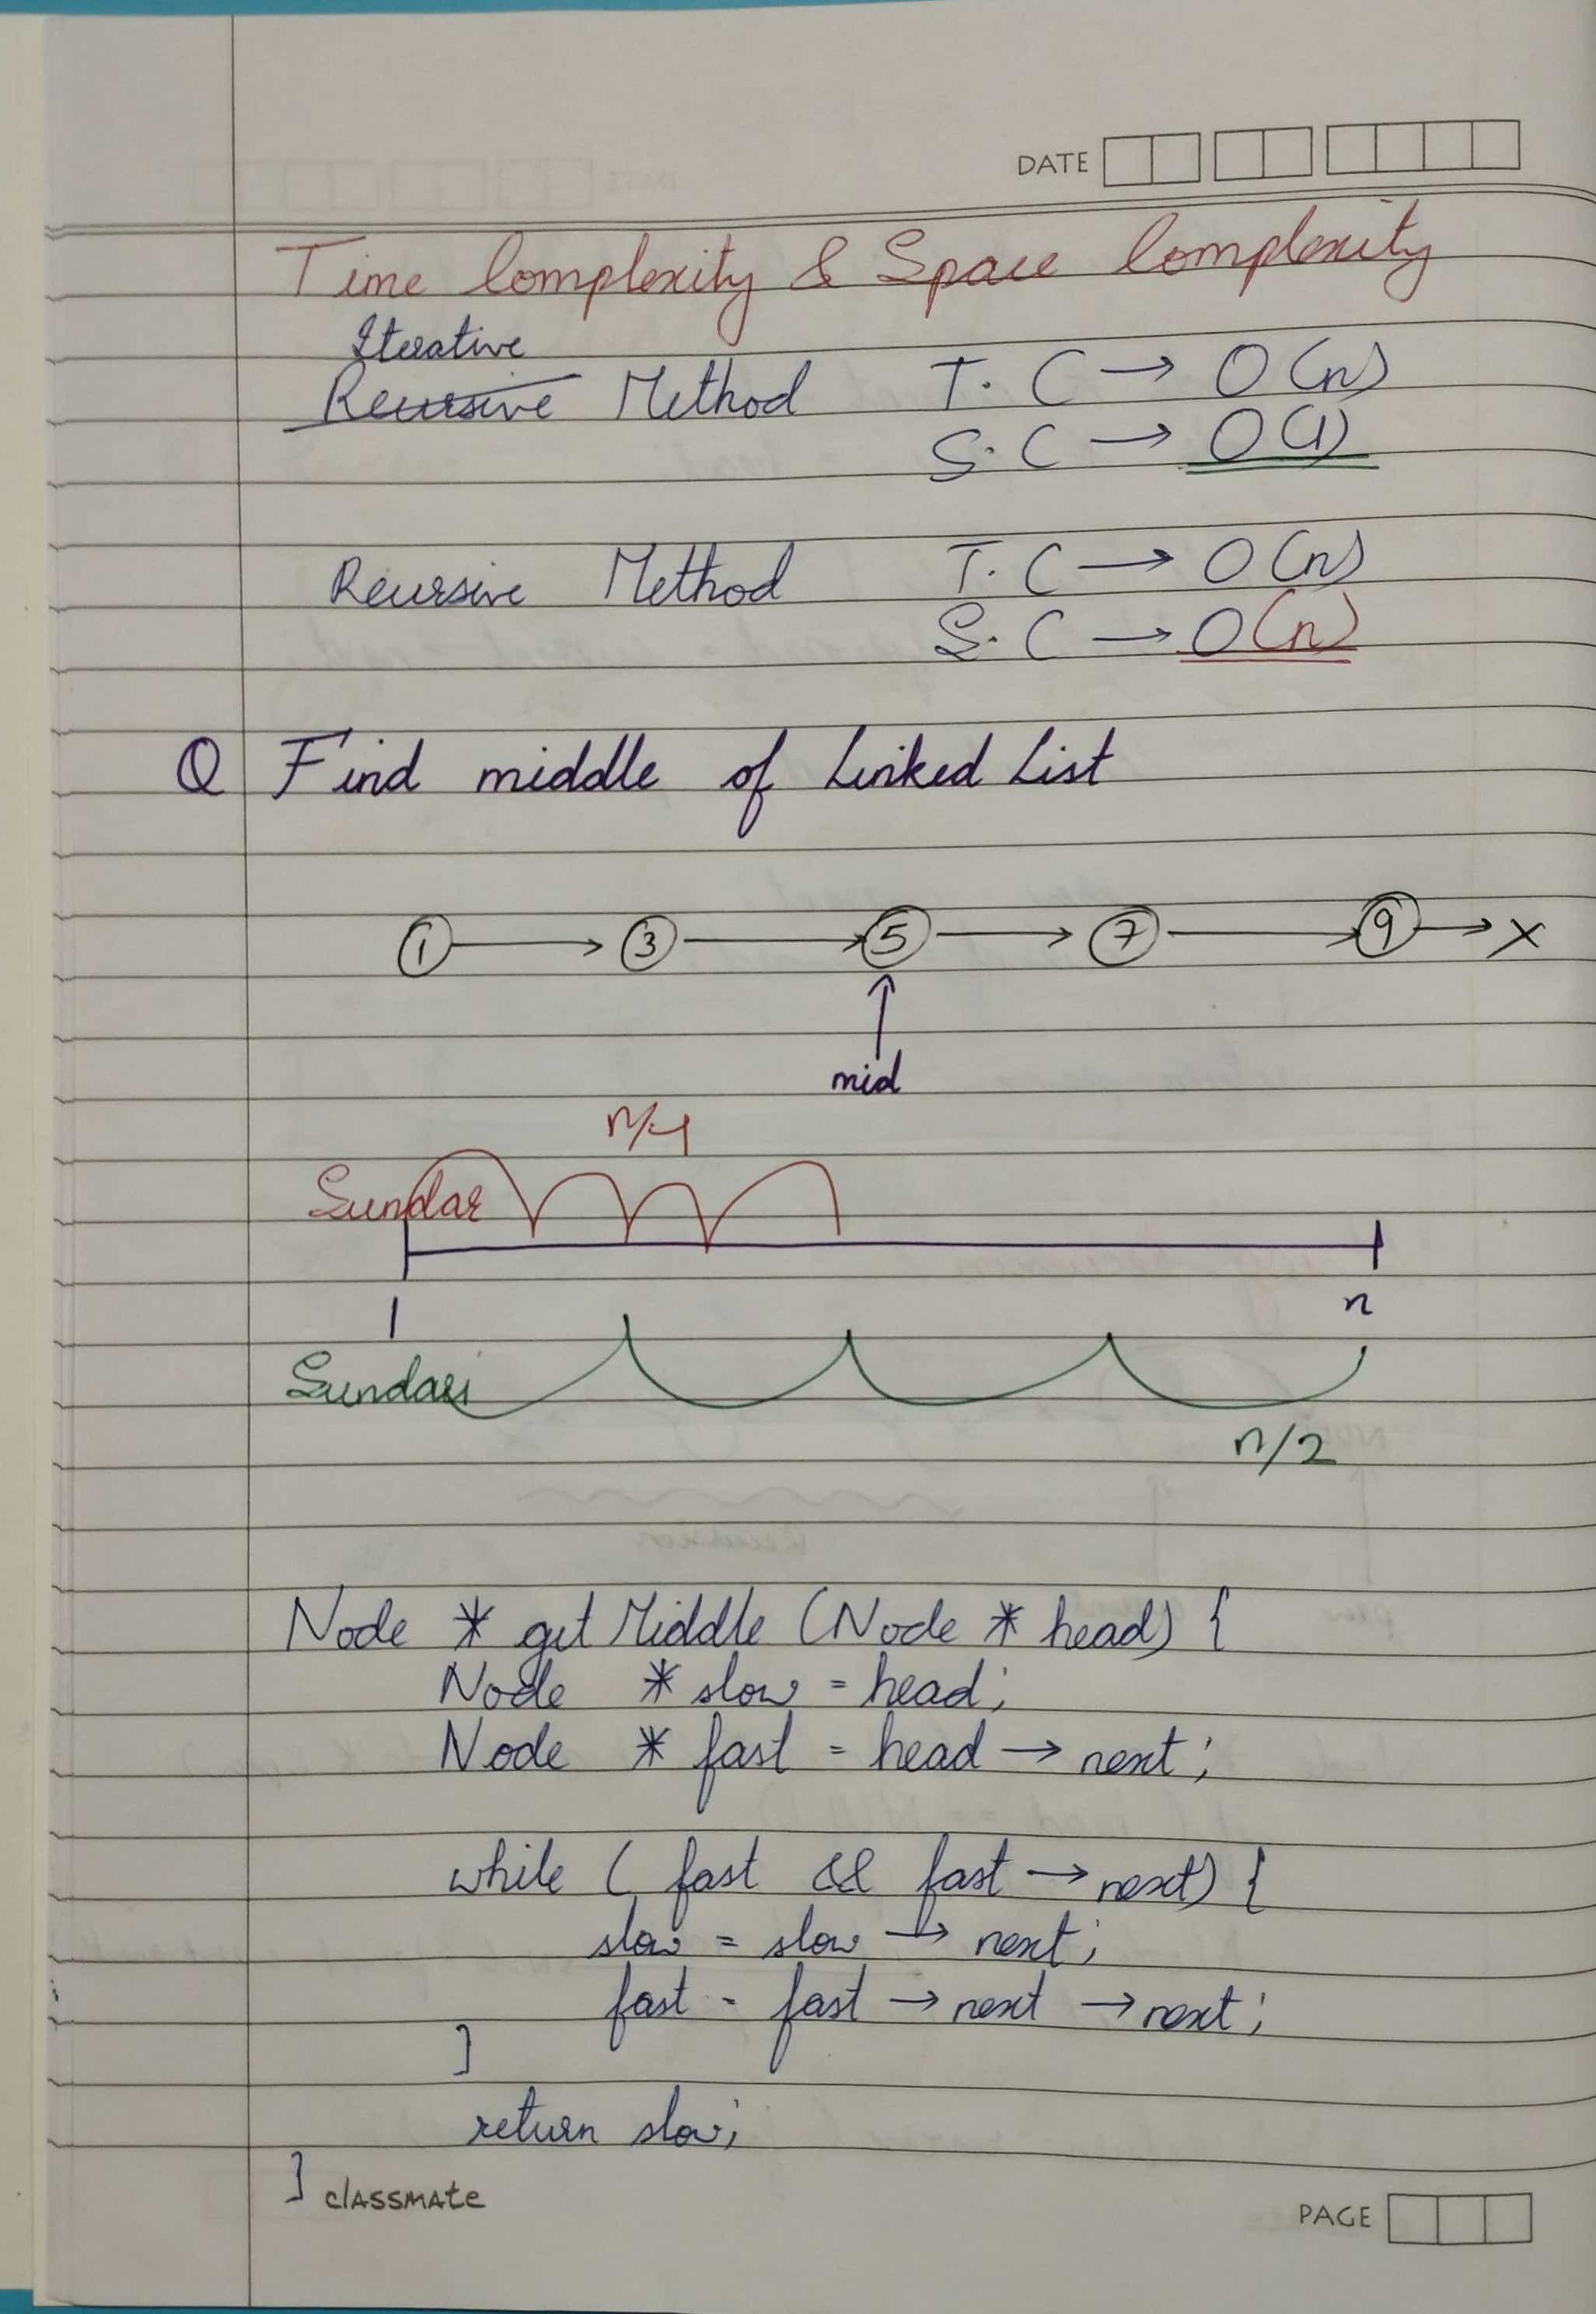 DATE
Time Complexity & Space Complexity
Iterative
Recursive Method T. C → O(n)
S. C → O(1)
Recursive Method T. C → O(n)
S. C → O(n)
Q Find middle of Linked List
1 → 3 → 5 → 7 → 9 → X
mid
n/4
Sundar
1 n
Sundari
n/2
Node * getMiddle (Node * head) {
Node * slow = head;
Node * fast = head → next;
while ( fast && fast → next) {
slow = slow → next;
fast = fast → next → next;
}
return slow;
}
classmate
PAGE